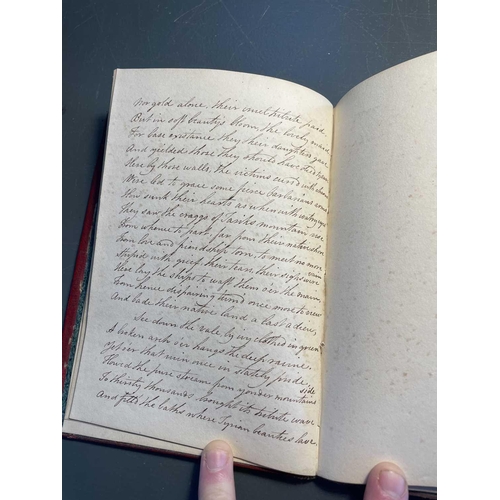 Nor gold alone, their
But in soft beauty's bloom, the lovely maid
For base exchange they their daughters gave
And yielded those they should have died to save
Here by those walls, the victims curs'd with charms
Were led to grace some fierce barbarians arms
How sunk their hearts as when with eyes
They saw the craggs of Tariks mountain rise
From whence to part, far from their native shore
From love and friendship torn, to meet no more
Stupid with grief, their tears their sighs were vain
Here lay the ships to waft them o'er the main,
From hence despairing turn'd once more to view
And bade their native land a last adieu,
See down the vale by ivy clothes in green
A broken arch o'er hangs the deep ravine
Yet o'er that ruin once in stately pride
Flow'd the pure stream from yonder mountains side
To thirsty thousands brought its tribute wave
And fill'd the baths where Tyrian beauties lave.